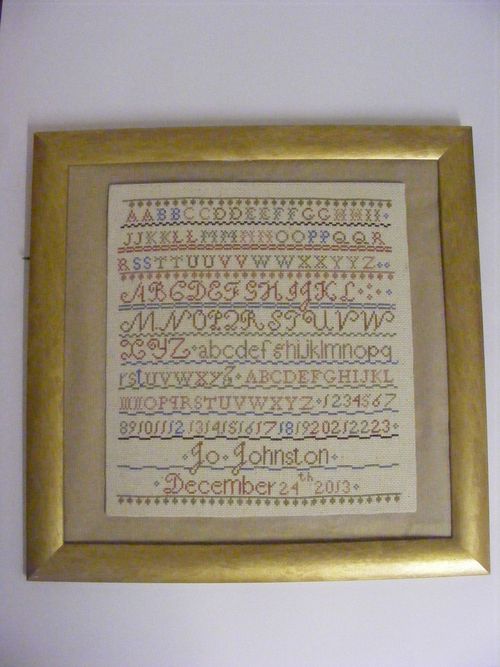 AABBCCDDEEFFGGHHII
JJKKLLMMNNOOPPQQR
RSSTTUUVVWWXXYYZ
ABCDEFGHIJKL
MNOPQRSTUVW
XYZ abcdefghijklmnopq
rstuvwxyz ABCDEFGHIJKL
MNOPQRSTUVWXYZ 1234567
891011121314151617181920212223
Jo Johnston
December 24th 2013